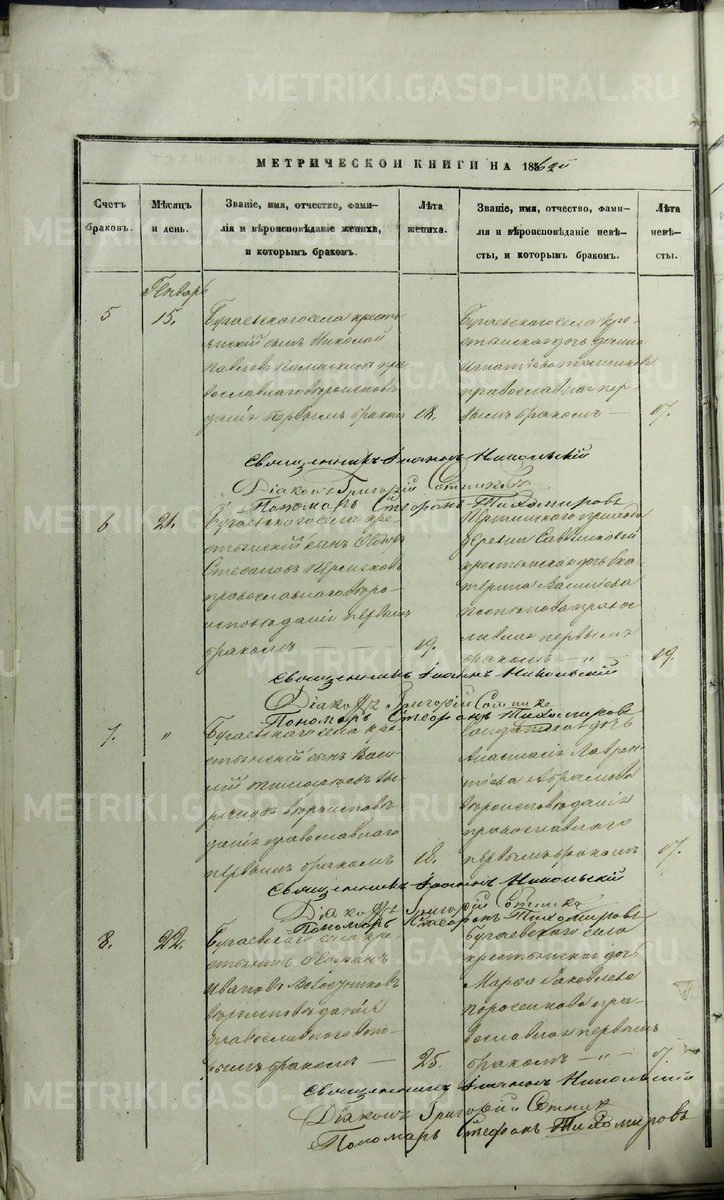 METRIKI.GASO-URAL.RU
МЕТРИЧЕСКОЙ КНИГИ НА 1862й
Счетъ браковъ.
Мѣсяцъ и день.
Званіе, имя, отчество, фами-
лія и вѣроисповѣданіе жениха,
и которымъ бракомъ.
Лѣта жениха.
Званіе, имя, отчество, фами-
лія и вѣроисповѣданіе невѣ-
сты, и которымъ бракомъ.
Лѣта невѣ-
сты.
Генварь
5
15.
Бугаевскаго села кресть
янскій сынъ Николай
Павловъ пра
вославнаго вѣроисповѣ
данія первымъ бракомъ
18.
Бугаевскаго села кре-
стьянская дочь
Игнатіева
православная пер
вымъ бракомъ —
17.
Священникъ Іоаннъ Никольскій
Діаконъ Григорій Сотниковъ
Пономарь Стефанъ Тихомировъ
6
21.
Бугаевскаго села кре-
стьянскій сынъ Ѳедоръ
Стефановъ
православнаго вѣро
исповѣданія первымъ
бракомъ —
19.
прихода
деревни
крестьянская дочь Ека
терина
правос
лавная первымъ
бракомъ — "
19.
Священникъ Іоаннъ Никольскій
Діаконъ Григорій Сотник
Пономарь Стефанъ Тихомировъ
7.
"
Бугаевскаго села кре
стьянскій сынъ Васи
лій Тимофѣевъ
вѣроисповѣ-
данія православнаго
первымъ бракомъ
18.
Солдатская дочь
Анастасія Лаврен
тіева Абрамова
вѣроисповѣданія
православнаго
первымъ бракомъ
17.
Священникъ Іоаннъ Никольскій
Діаконъ Григорій Сотник
Пономарь Стефанъ Тихомировъ
8.
22.
Бугаевскаго села кре
стьянинъ
Ивановъ
вѣроисповѣданія
православнаго вто-
рымъ бракомъ —
25.
Бугаевскаго села
крестьянская дочь
Марѳа Яковлева
пра
вославная первымъ
бракомъ — " —
Священникъ Іоаннъ Никольскій
Діаконъ Григорій Сотник
Пономарь Стефанъ Тихомировъ